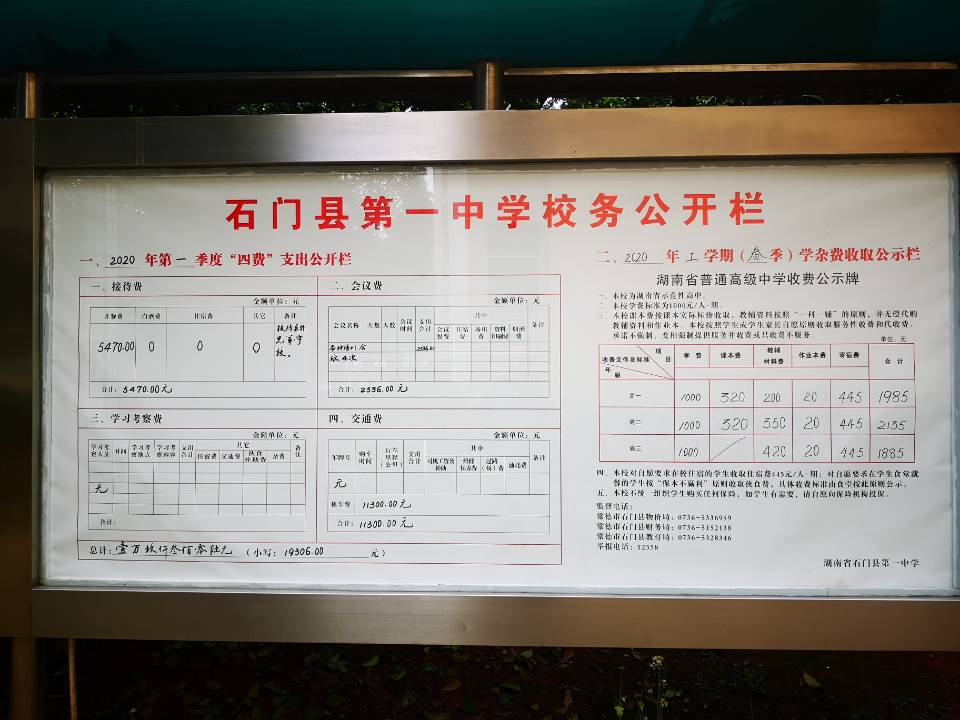 石门县第一中学校务公开栏
一、2020 年第一季度“四费”支出公开栏
一、接待费
金额单位：元
用餐费 白酒费 住宿费 其它 备注
5470.00 0 0 0
合计：5470.00元
二、会议费
金额单位：元
会议名称 天数 人数 会议时间 支出合计 其中 备注
会议餐费 住宿费 场租费 资料印刷费 烟酒费
2536.00
合计：2536.00元
三、学习考察费
金额单位：元
学习考察人员 时间 学习考察地点 学习考察内容 支出合计 其它 备注
住宿费 交通费 伙食补助费 杂费
无
合计：
四、交通费
金额单位：元
车牌号 购车时间 行车里程(公里) 支出合计 其中 备注
司机工资及补助 维修保养费 过路(桥)费 油耗费
无
租车费 11300.00元
合计：11300.00元
总计：壹万玖仟叁佰零陆元 （小写：19306.00 元）
二、2020 年上学期（春季）学杂费收取公示栏
湖南省普通高级中学收费公示牌
一、本校为湖南省示范性高中。
二、本校学费标准为1000元/人·期。
三、本校课本费按课本实际标价收取，教辅资料按照“一科一辅”的原则，并无偿代购
教辅资料和作业本。本校按照学生或学生家长自愿原则收取服务性收费和代收费，
承诺不强制、变相强制提供服务并收费或只收费不服务。
单位：元
收费文件及标准 项目 年级 学费 课本费 教辅材料费 作业本费 寄宿费 合计
高一 1000 320 200 20 445 1985
高二 1000 320 350 20 445 2135
高三 1000 / 420 20 445 1885
四、本校对自愿要求在校住宿的学生收取住宿费445元/人·期；对自愿要求在学生食堂就
餐的学生按“保本不赢利”原则收取伙食费，具体收费标准由食堂按此原则公示。
五、本校不统一组织学生购买任何保险，如学生有需要，请自愿向保险机构投保。
监督电话：
常德市石门县物价局：0736-5336959
常德市石门县财务局：0736-5152138
常德市石门县教育局：0736-5328346
举报电话：12358
湖南省石门县第一中学